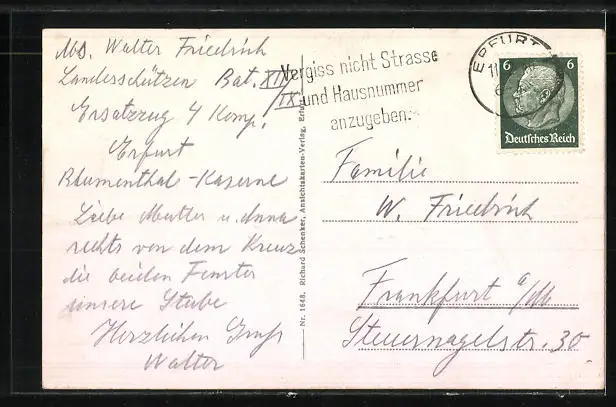 Abs. Walter Friedrich
Landesschützen Bat. XII/IX
Ersatzzug 4 Komp.
Erfurt
Blumenthal-Kaserne
Liebe Mutter u. Anna
rechts von dem Kreuz
die beiden Fenster
unsere Stube
Herzlichen Gruß
Walter
Nr. 1648. Richard Schenker, Ansichtskarten-Verlag, Erfurt
Vergiss nicht Strasse
und Hausnummer
anzugeben.
ERFURT
11
6 6
Deutsches Reich
Familie
W. Friedrich
Frankfurt a/M
Steuernagelstr. 30